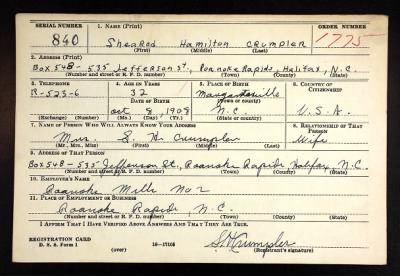 SERIAL NUMBER 1. NAME (Print) ORDER NUMBER
840 Shearod Hamilton Crumpler 1775
(First) (Middle) (Last)
2. ADDRESS (Print)
Box 548 - 535 Jefferson St., Roanoke Rapids, Halifax, N.C.
(Number and street or R. F. D. number) (Town) (County) (State)
3. TELEPHONE 4. AGE IN YEARS 5. PLACE OF BIRTH 6. COUNTRY OF CITIZENSHIP
R-523-6 32
DATE OF BIRTH (Town or county)
Oct 9 1909 N.C. U.S.A.
(Exchange) (No.) (Mo.) (Day) (Yr.) (State or country)
7. NAME OF PERSON WHO WILL ALWAYS KNOW YOUR ADDRESS 8. RELATIONSHIP OF THAT PERSON
Mrs. S. H. Crumpler Wife
(Mr., Mrs., Miss) (First) (Middle) (Last)
9. ADDRESS OF THAT PERSON
Box 548 - 535 Jefferson St., Roanoke Rapids, Halifax, N.C.
(Number and street or R. F. D. number) (Town) (County) (State)
10. EMPLOYER'S NAME
Roanoke Mills No. 2
11. PLACE OF EMPLOYMENT OR BUSINESS
Roanoke Rapids, N.C.
(Number and street or R. F. D. number) (Town) (County) (State)
I AFFIRM THAT I HAVE VERIFIED ABOVE ANSWERS AND THAT THEY ARE TRUE.
REGISTRATION CARD
D. S. S. Form 1 (over) 16-17105 S H Crumpler
(Registrant's signature)